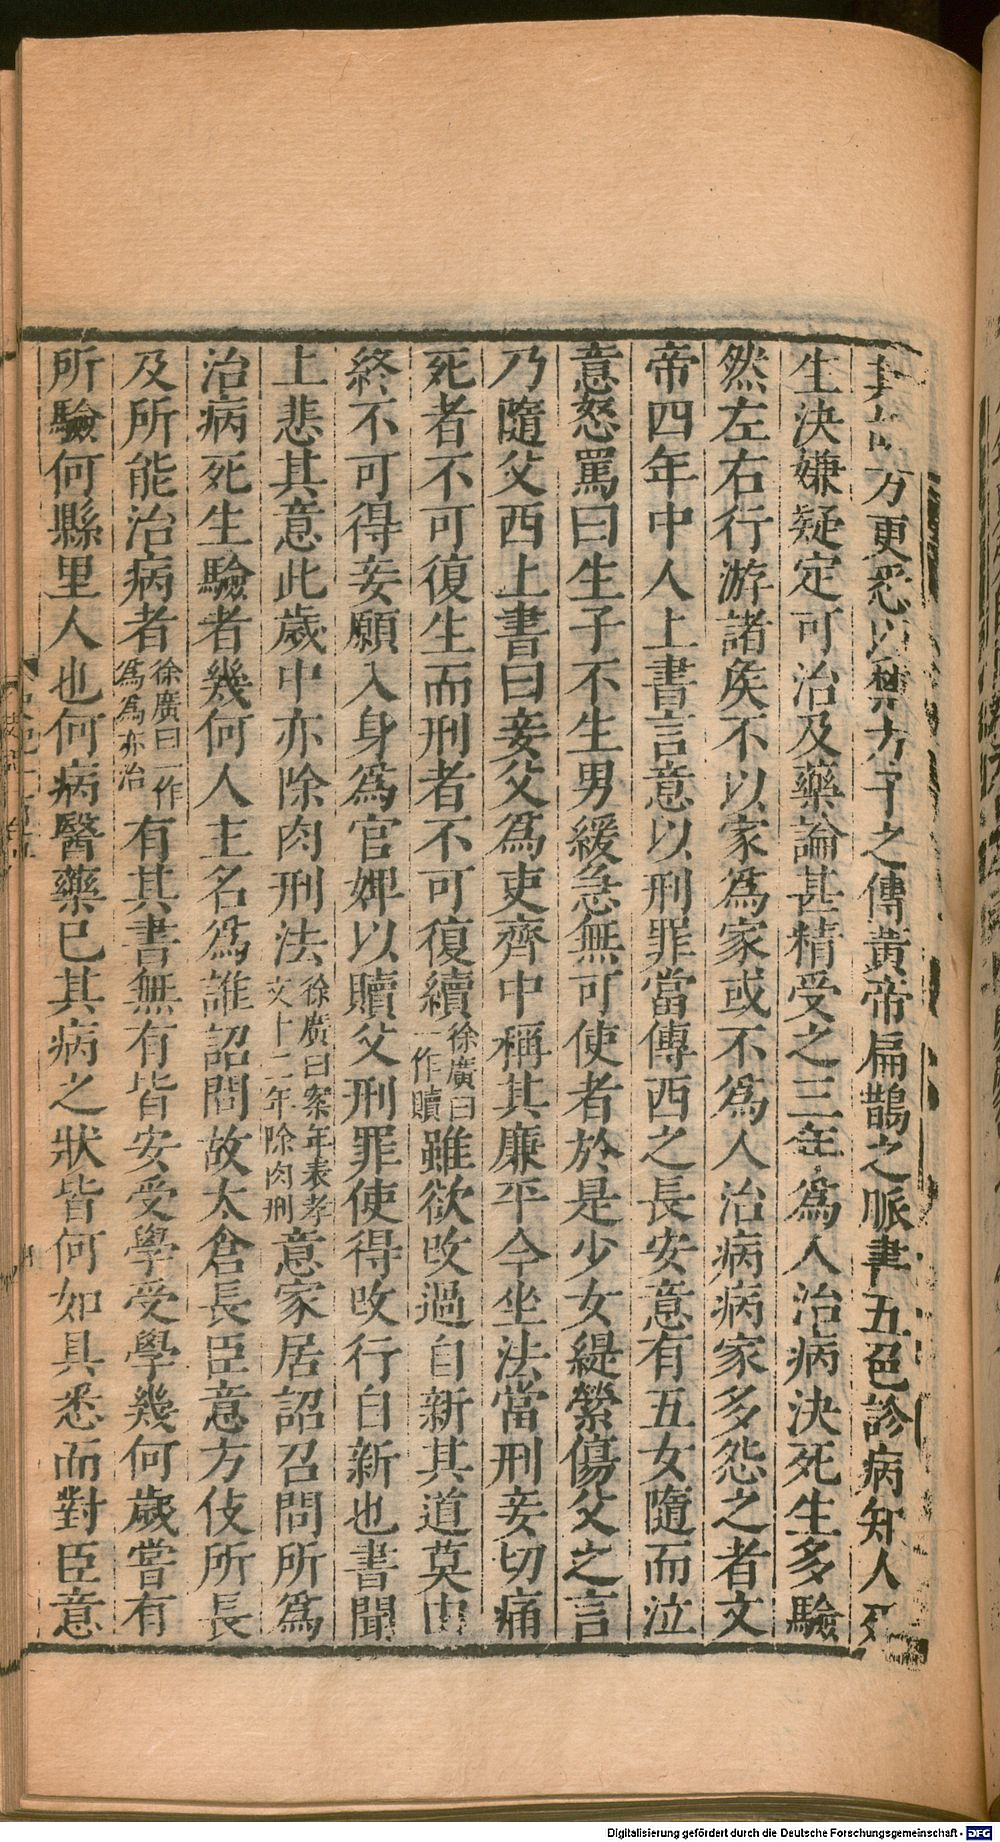 其故方更悉以禁方予之傳黃帝扁鵲之脈書五色診病知人死
生決嫌疑定可治及藥論甚精受之三年爲人治病決死生多驗
然左右行游諸矦不以家爲家或不爲人治病病家多怨之者文
帝四年中人上書言意以刑罪當傳西之長安意有五女隨而泣
意怒罵曰生子不生男緩急無可使者於是少女緹縈傷父之言
乃隨父西上書曰妾父爲吏齊中稱其廉平今坐法當刑妾切痛
死者不可復生而刑者不可復續徐廣曰一作贖雖欲改過自新其道莫由
終不可得妾願入身爲官婢以贖父刑罪使得改行自新也書聞
上悲其意此歲中亦除肉刑法徐廣曰案年表孝文十二年除肉刑意家居詔召問所爲
治病死生驗者幾何人主名爲誰詔問故太倉長臣意方伎所長
及所能治病者徐廣曰一作爲爲亦治有其書無有皆安受學受學幾何歲嘗有
所驗何縣里人也何病醫藥已其病之狀皆何如具悉而對臣意
Digitalisierung gefördert durch die Deutsche Forschungsgemeinschaft - DFG